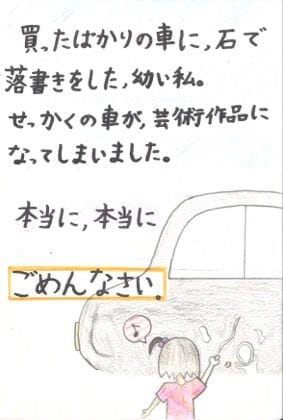 買ったばかりの車に,石で
落書きをした,幼い私。
せっかくの車が,芸術作品に
なってしまいました。
本当に,本当に
ごめんなさい。